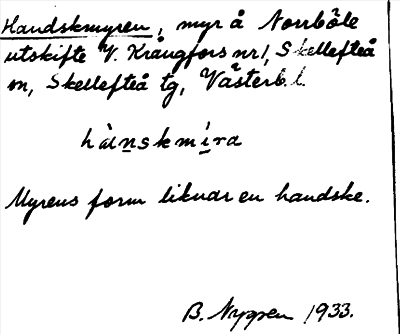 Handskmyren, myr å Norrböle
utskifte V. Krångfors nr 1, Skellefteå
sn, Skellefteå tg, Västerb. l.
hànskmíra
Myrens form liknar en handske.
B. Nygren 1933.